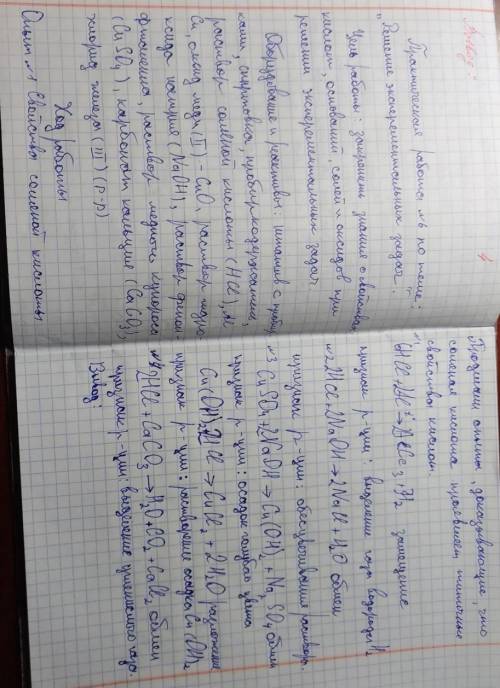 Практическая работа №6 по теме:
"Решение эксперементальных задач".
Цель работы: закрепить знания о свойствах
кислот, оснований, солей и оксидов при
решении эксперементальных задач.
Оборудование и реактивы: штатив с пробир-
ками, спиртовка, пробиркодержатель,
раствор соляной кислоты (HCl), Al
Cu, оксид меди (II) - CuO, раствор гидро-
ксида натрия (NaOH), раствор фенол-
фталеина, раствор медного купороса
(CuSO4), карбонат кальция (CaCO3),
хлорид железа (III) (р-р)
Ход работы
Опыт №1 Свойства соляной кислоты
Проделаем опыты, доказывающие, что
соляная кислота проявляет типичные
свойства кислот.
№1
6HCl+2Al→2AlCl3+3H2 замещение
признак р-ции: выделение газа водорода H2
№2 2HCl+2NaOH→2NaCl+H2O обмен
признак р-ции: обесцвечивание раствора.
№3 CuSO4+2NaOH→Cu(OH)2+Na2SO4 обмен
признак р-ции: осадок голубого цвета
Cu(OH)2+2HCl→CuCl2+2H2O
признак р-ции: растворение осадка Cu(OH)2
№4 2HCl+CaCO3→H2O+CO2+CaCl2 обмен
признак р-ции: выделение углекислого газа.
Вывод: